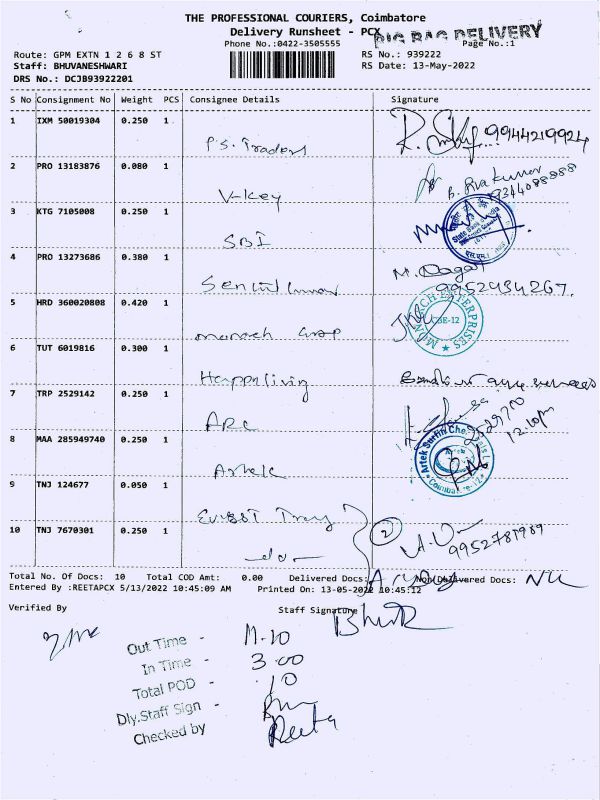 THE PROFESSIONAL COURIERS, Coimbatore
Delivery Runsheet - PCX
BIG BAG DELIVERY
Phone No.:0422-3505555
Page No.:1
Route: GPM EXTN 1 2 6 8 ST
RS No.: 939222
Staff: BHUVANESHWARI
RS Date: 13-May-2022
DRS No.: DCJB93922201
S No Consignment No Weight PCS Consignee Details Signature
1 IXM 50019304 0.250 1
P.S. Traders 9944219924
2 PRO 13183876 0.080 1
V-Key 9344088888
3 KTG 7105008 0.250 1
SBI
State Bank of India
4 PRO 13273686 0.380 1
9952934267.
5 HRD 360020808 0.420 1
MONARCH ENTERPRISES
CBE-12
6 TUT 6019816 0.300 1
Happy living
7 TRP 2529142 0.250 1
ARC 2529700
12.10pm
8 MAA 285949740 0.250 1
Artek
Artek Surfin Chemicals
Coimbatore-12
9 TNJ 124677 0.050 1
10 TNJ 7670301 0.250 1
-do-
2
9952781989
Total No. Of Docs: 10 Total COD Amt: 0.00 Delivered Docs: Non Delivered Docs: NIL
Entered By :REETAPCX 5/13/2022 10:45:09 AM Printed On: 13-05-2022 10:45:12
Verified By Staff Signature
Out Time - 11.10
In Time - 3.00
Total POD - 10
Dly.Staff Sign -
Checked by Reeta